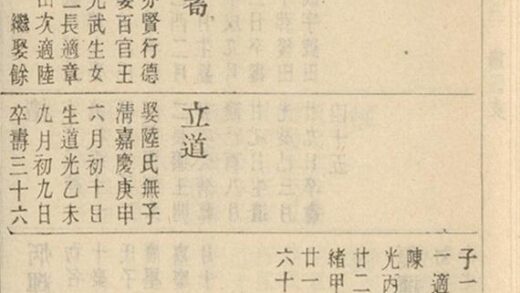 賢行德
娶百官王
光武生女
二長適章
次適陸
繼娶餘
立道
娶陸氏無子
清嘉慶庚申
六月初十日
生道光乙未
九月初九日
卒壽三十六
子一
一適
陳
光丙
廿二
緒甲
廿一
六十